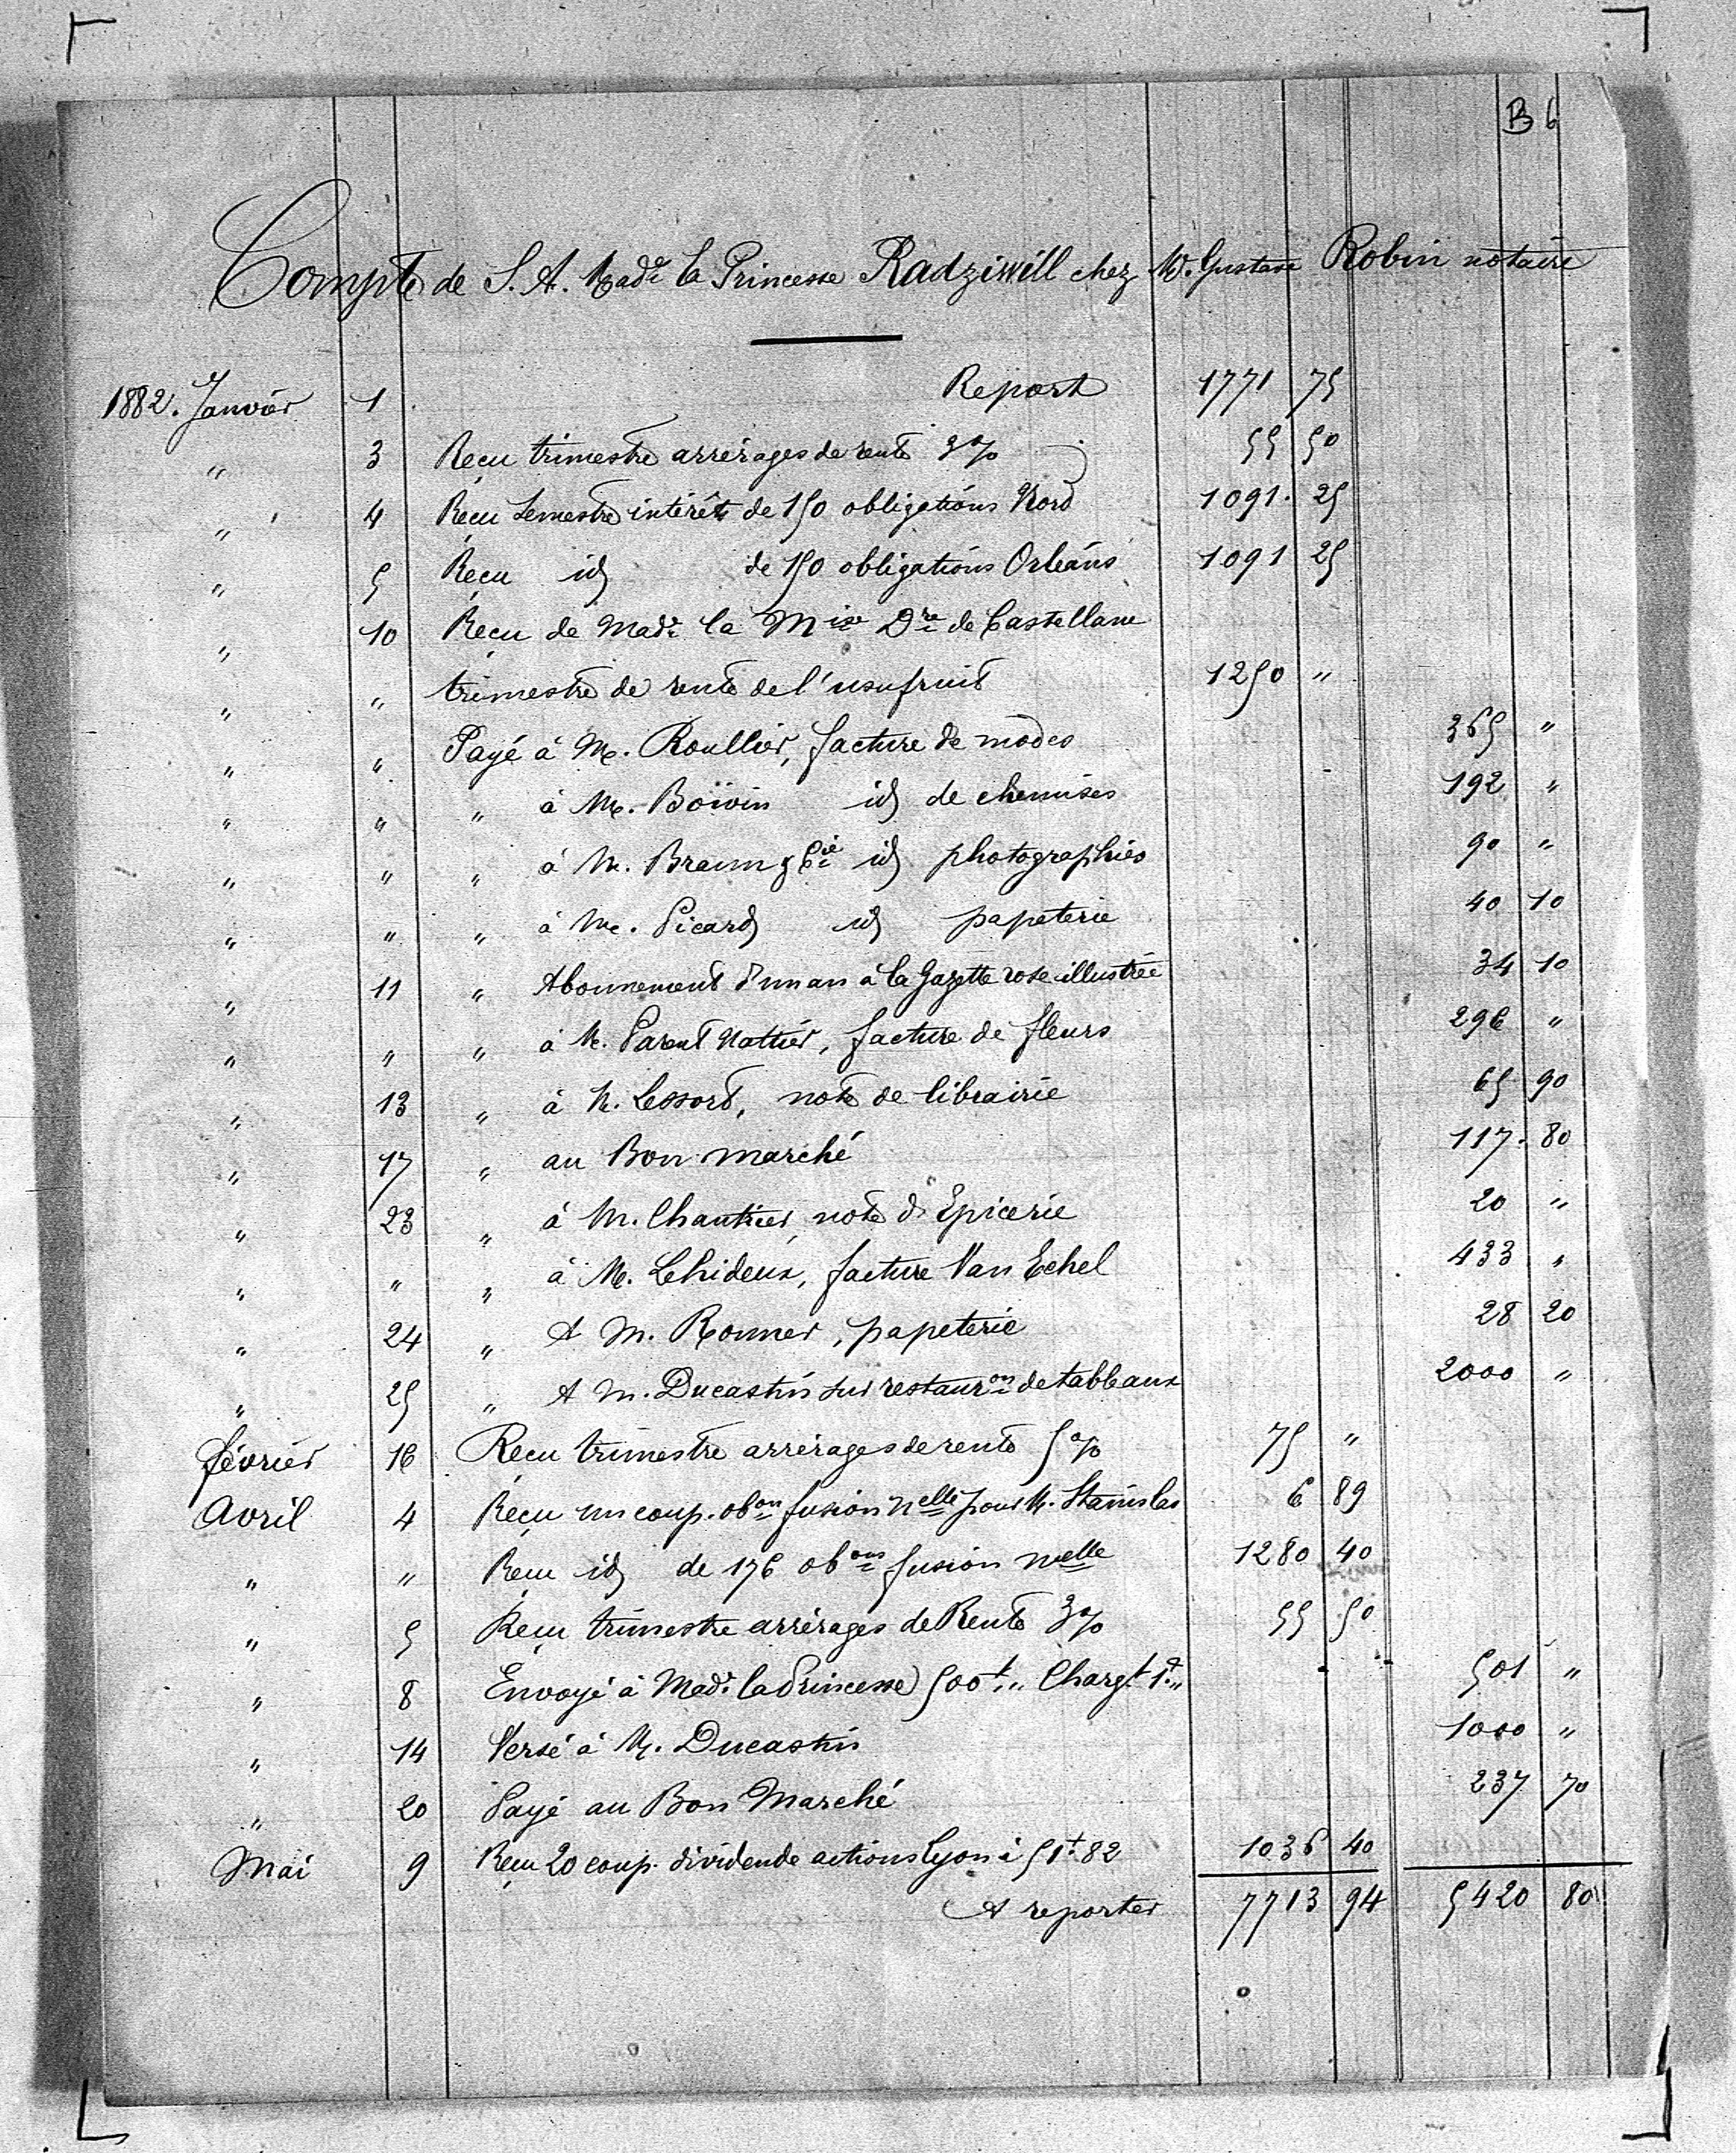 B 6
Compte de S. A. Mad.e la Princesse Radziwill chez M. Gustave Robin notaire
1882. Janvier 1 Report 1771 75
" 3 Reçu trimestre arrérages de rente 3% 55 50
" 4 Reçu Semestre intérêt de 150 obligations Nord 1091. 25
" 5 Reçu id de 150 obligations Orléans 1091 25
" 10 Reçu de Made la Mise Dre de Castellane
" " trimestre de rente de l'usufruit 1250 "
" " Payé à M. Roullier, facture de modes 365 "
" " " à M. Boivin id de chemises 192 "
" " " à M. Braun & Cie id photographies 90 "
" " " à M. Picard id papeterie 40 10
" 11 " Abonnement d'un an à la Gazette rose illustrée 34 10
" " " à M. Parent Nattier, facture de fleurs 296 "
" 13 " à M. Lessord, note de librairie 65 90
" 17 " au Bon marché 117. 80
" 23 " à M. Chantrier, note d'Epicerie 20 "
" " " à M. Lehideux, facture Van Echel 433 "
" 24 " A M. Ronner, papeterie 28 20
" 25 " A M. Ducastin sur restauron de tableaux 2000 "
février 16 Reçu trimestre arrérages de rente 5% 75 "
Avril 4 Reçu un coup. obon fusion nelle pour M. Stanislas 6 89
" " Reçu id de 176 obons fusion nelle 1280 40
" 5 Reçu trimestre arrérages de Rente 3% 55 50
" 8 Envoyé à Made la Princesse 500f " Chargt 1f " 501 "
" 14 Versé à M. Ducastin 1000 "
" 20 Payé au Bon Marché 237 70
Mai 9 Reçu 20 coup. dividende actions Lyon à 51f 82 1036 40
A reporter 7713 94 5420 80